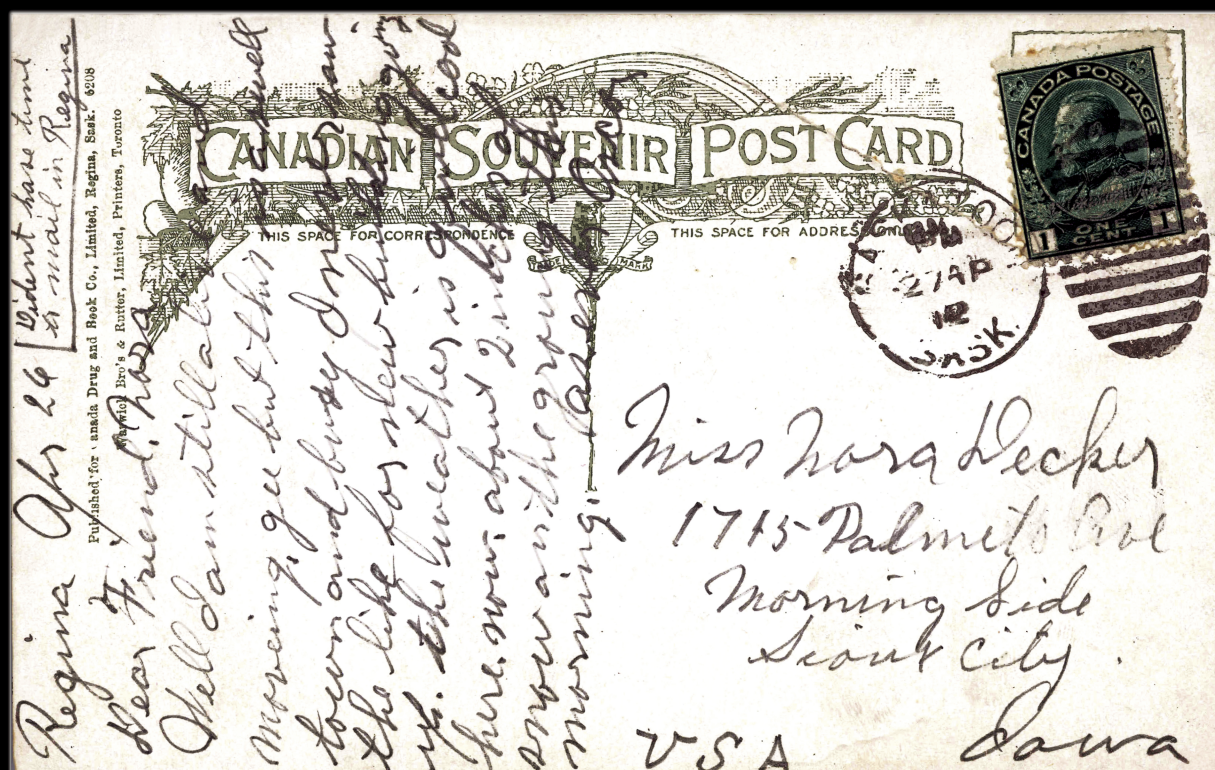 CANADIAN SOUVENIR POST CARD
THIS SPACE FOR CORRESPONDENCE
THIS SPACE FOR ADDRESS ONLY
TRADE MARK
CANADA POSTAGE
1 ONE CENT 1
PM
27 AP
12
SASK.
Published for Canada Drug and Book Co., Limited, Regina, Sask. 6208
Warwick Bro's & Rutter, Limited, Printers, Toronto
Regina Apr 26
Dident have time
to mail in Regina
Dear Friend, Nora
Well I am still alive and
moveing, gee but this is a swell
town and busy I never saw
the like for new buildings going
up. the weather is quite cool
here now about 2 inches of
snow on the ground this
morning.
Miss Nora Decker
1715 Palmeto Ave
Morning Side
Sioux City.
Iowa
U S A